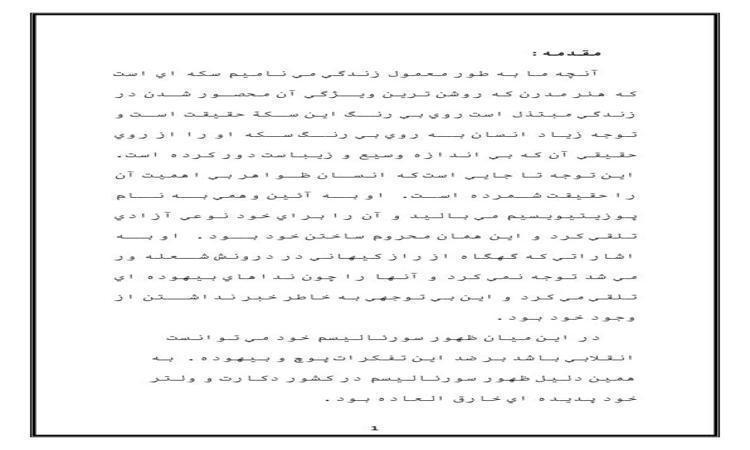 مقدمه :
آنچه ما به طور معمول زندگي مي ناميم سكه اي است
كه هنر مدرن كه روشن ترين ويژگي آن محصور شدن در
زندگي مبتذل است روي بي رنگ اين سكة حقيقت است و
توجه زياد انسان به روي بي رنگ سكه او را از روي
حقيقي آن كه بي اندازه وسيع و زيباست دور كرده است.
اين توجه تا جايي است كه انسان ظواهر بي اهميت آن
را حقيقت شمرده است. او به آئين وهمي به نام
پوزيتيويسيم مي باليد و آن را براي خود نوعي آزادي
تلقي كرد و اين همان محروم ساختن خود بود. او به
اشاراتي كه گهگاه از راز كيهاني در درونش شعله ور
مي شد توجه نمي كرد و آنها را چون نداهاي بيهوده اي
تلقي مي كرد و اين بي توجهي به خاطر خبر نداشتن از
وجود خود بود.
در اين ميان ظهور سورئاليسم خود مي توانست
انقلابي باشد بر ضد اين تفكرات پوچ و بيهوده. به
همين دليل ظهور سورئاليسم در كشور دكارت و ولتر
خود پديده اي خارق العاده بود.
1